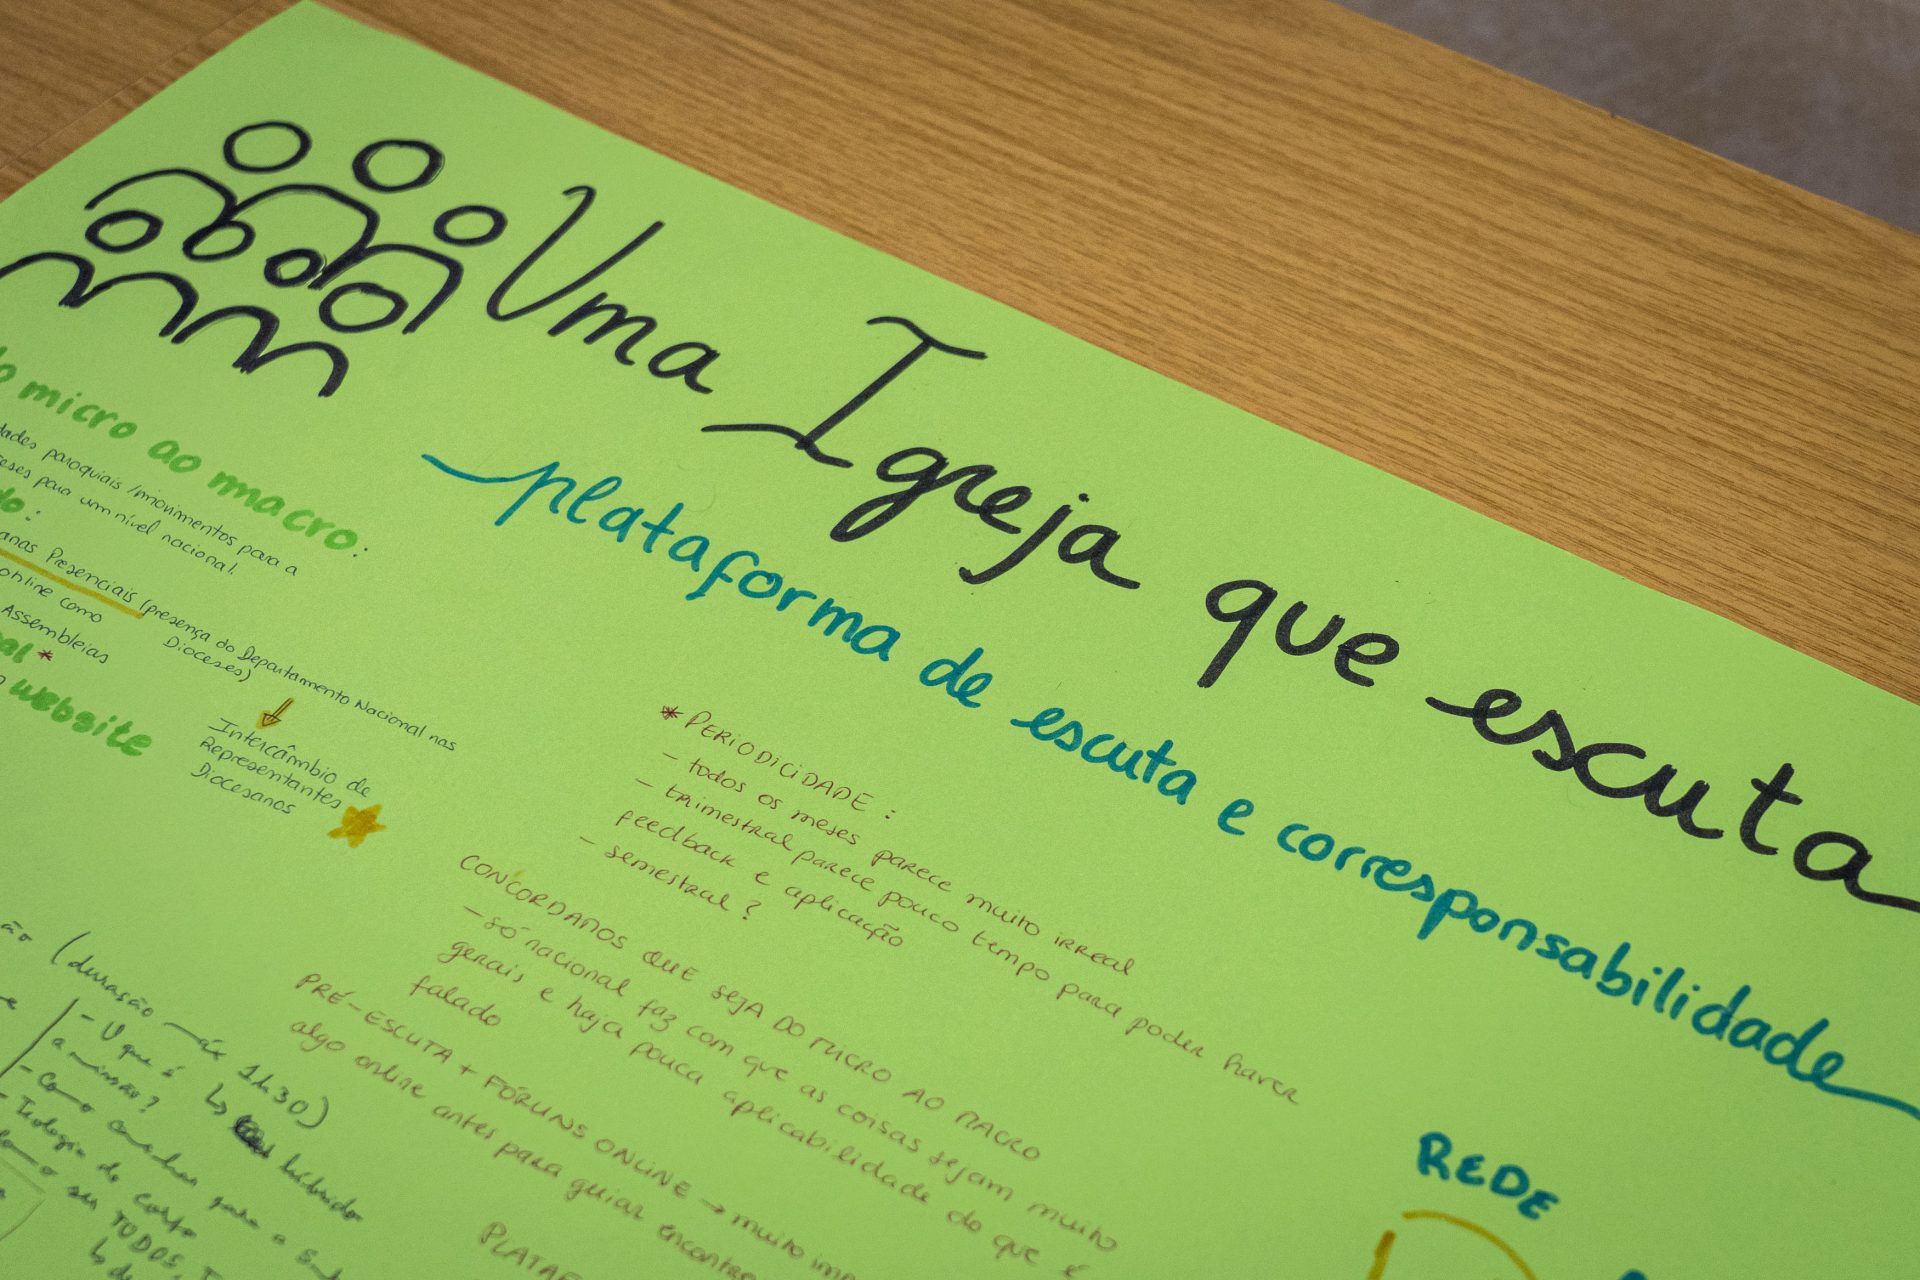 Uma Igreja que escuta
plataforma de escuta e corresponsabilidade
micro ao macro:
paroquiais/movimentos para a
para um nível nacional.
Presenciais (presença do Departamento Nacional nas
Dioceses)
online como
Assembleias
*
website
Intercâmbio de
Representantes
Diocesanos
* PERIODICIDADE:
- todos os meses parece muito irreal
- trimestral parece pouco tempo para poder haver
feedback e aplicação
- semestral?
CONCORDAMOS QUE SEJA DO MICRO AO MACRO
- só nacional faz com que as coisas sejam muito
gerais e haja pouca aplicabilidade do que é
falado
PRÉ-ESCUTA + FÓRUNS ONLINE → muito
algo online antes para guiar
(duração 1h30)
- O que é
a missão?
- Como para o
- Teologia do corpo
TODOS,
REDE